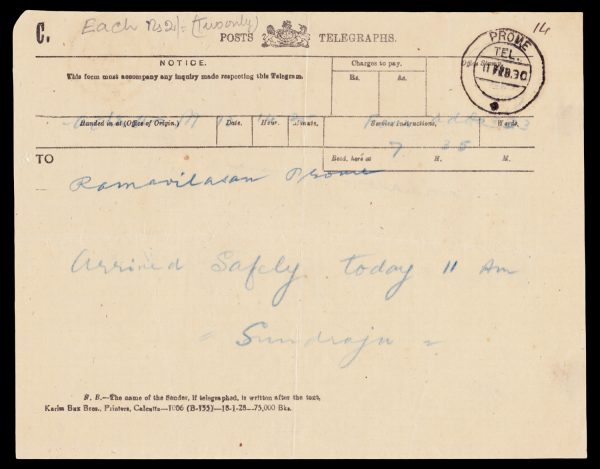 Each Rs 2/= (two only)
14
C.
POSTS TELEGRAPHS.
PROME
TEL.
11 FEB. 30
NOTICE.
This form must accompany any inquiry made respecting this Telegram.
Charges to pay.
Rs. As.
Office Stamp.
Handed in at (Office of Origin). Date. Hour. Minute. Service Instructions. Words.
TO
Recd. here at 7 H. 35 M.
Ramavilasan Prome
Arrived Safely today 11 Am
= Sundraju =
N. B.—The name of the Sender, if telegraphed, is written after the text.
Karim Bux Bros., Printers, Calcutta—1086 (B-135)—18-1-28—75,000 Bks.